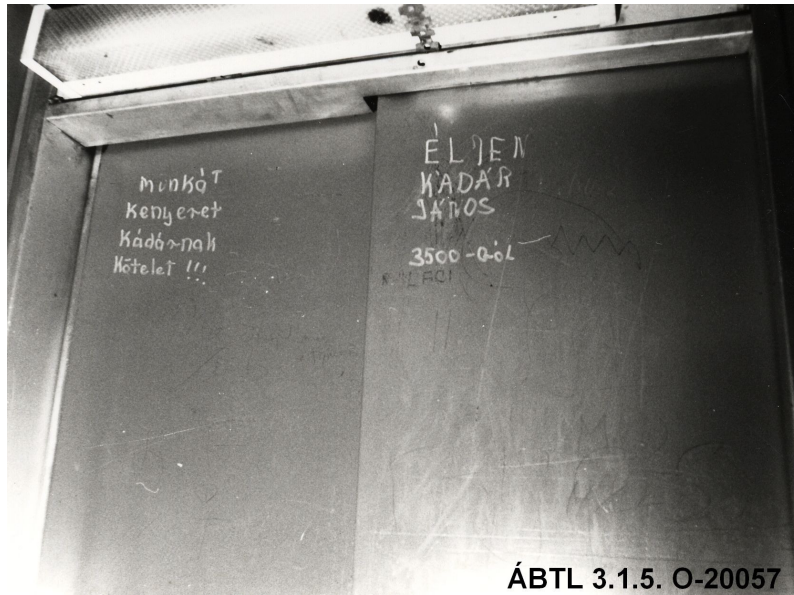 munkáT
Kenyeret
Kádárnak
Kötelet !!!
ÉLJEN
KÁDÁR
JÁNOS
3500-ból
ÁBTL 3.1.5. O-20057